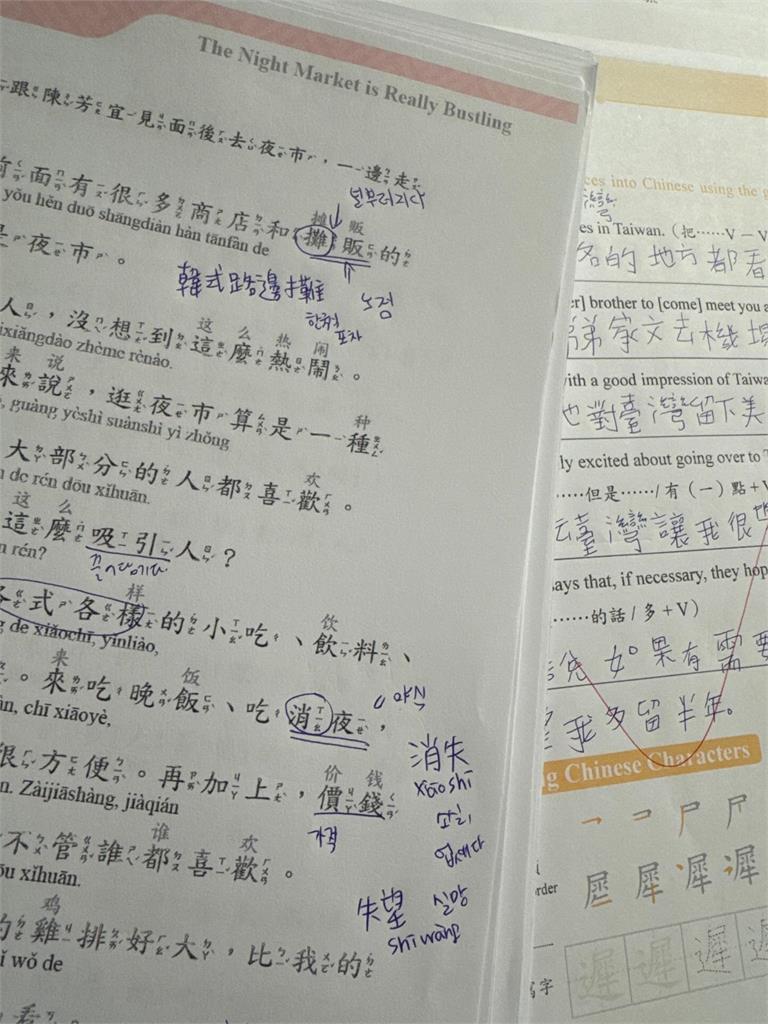 The Night Market is Really Bustling
跟陳芳宜見面後去夜市，一邊走
널부러지다
摊 贩
前面有很多商店和攤販的
yǒu hěn duō shāngdiàn hàn tānfàn de
是夜市。
韓式路邊攤
노점
한척
포차
这么热闹
人，沒想到這麼熱鬧。
xiǎngdào zhème rènào.
来说
來說，逛夜市算是一種
种
guàng yèshì suànshì yì zhǒng
大部分的人都喜歡。
欢
de rén dōu xǐhuān.
这么
這麼吸引人？
끌어당기다
rén?
样
各式各樣的小吃、飲料、
饮
de xiǎochī, yǐnliào,
来 饭
。來吃晚飯、吃消夜，
야식
chī xiāoyè,
消失
xiāoshī
없애다
很方便。再加上，價錢
价钱
Zàijiāshàng, jiàqián
가격
谁 欢
不管誰都喜歡。
xǐhuān.
失望 실망
shīwàng
鸡
的雞排好大，比我的
wǒ de
看
into Chinese using the
灣
in Taiwan. (把……V一V
的地方都看
brother to [come] meet you a
家文去機場
with a good impression of Taiwa
他對臺灣留下美
ly excited about going over to
……但是……/有（一）點+V
去臺灣讓我很
says that, if necessary, they hop
……的話/多+V）
如果有需要
我多留半年。
Chinese Characters
order
遲 遲 遲 遲
寫字